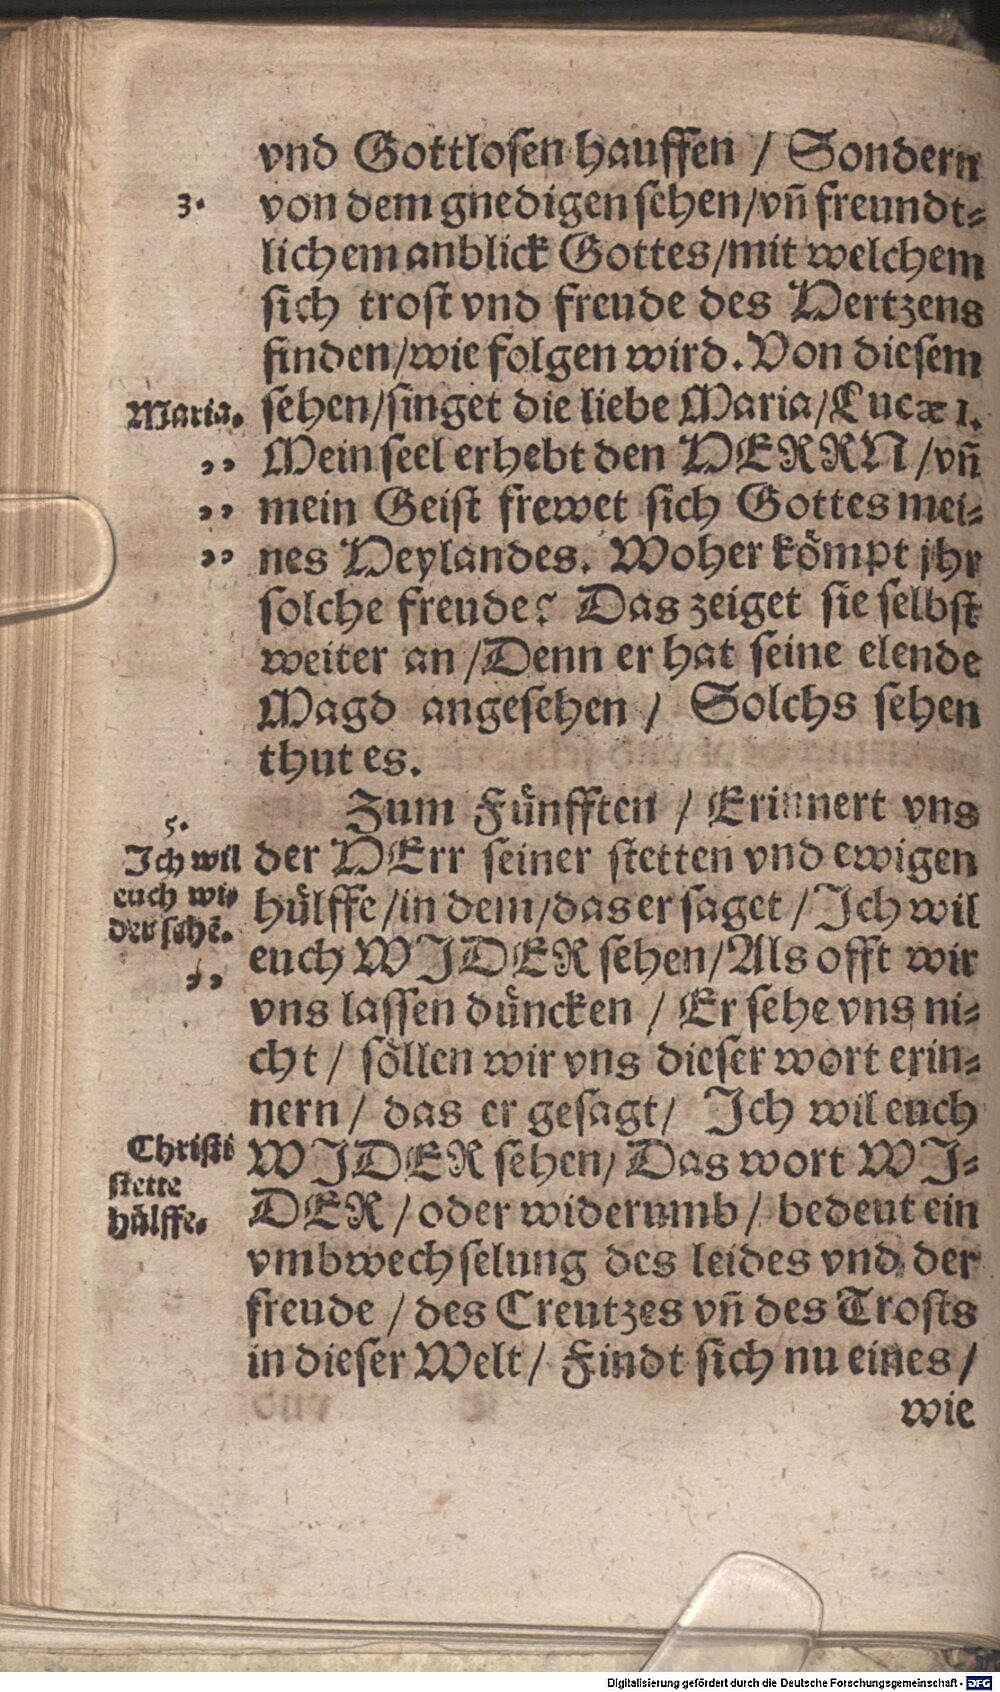 vnd Gottlosen hauffen / Sondern
3. von dem gnedigen sehen/vñ freundt⸗
lichem anblick Gottes/mit welchem
sich trost vnd freude des Hertzens
finden/wie folgen wird. Von diesem
Maria. sehen/singet die liebe Maria/Lucæ 1.
,, Mein seel erhebt den HERRN /vñ
,, mein Geist frewet sich Gottes mei⸗
,, nes Heylandes. Woher kömpt jhr
solche freude? Das zeiget sie selbst
weiter an /Denn er hat seine elende
Magd angesehen / Solchs sehen
thut es.
Zum Fünfften / Erinnert vns
5.
Ich wil der HErr seiner stetten vnd ewigen
euch wi⸗ hülffe/in dem/das er saget / Ich wil
der sehē. euch WIDER sehen/Als offt wir
,,
vns lassen düncken / Er sehe vns ni⸗
cht / söllen wir vns dieser wort erin⸗
nern / das er gesagt/ Ich wil euch
Christi WIDER sehen/ Das wort WI⸗
stette
hülffe. DER / oder widerumb / bedeut ein
vmbwechselung des leides vnd der
freude / des Creutzes vñ des Trosts
in dieser Welt / Findt sich nu eines /
wie
Digitalisierung gefördert durch die Deutsche Forschungsgemeinschaft - DFG